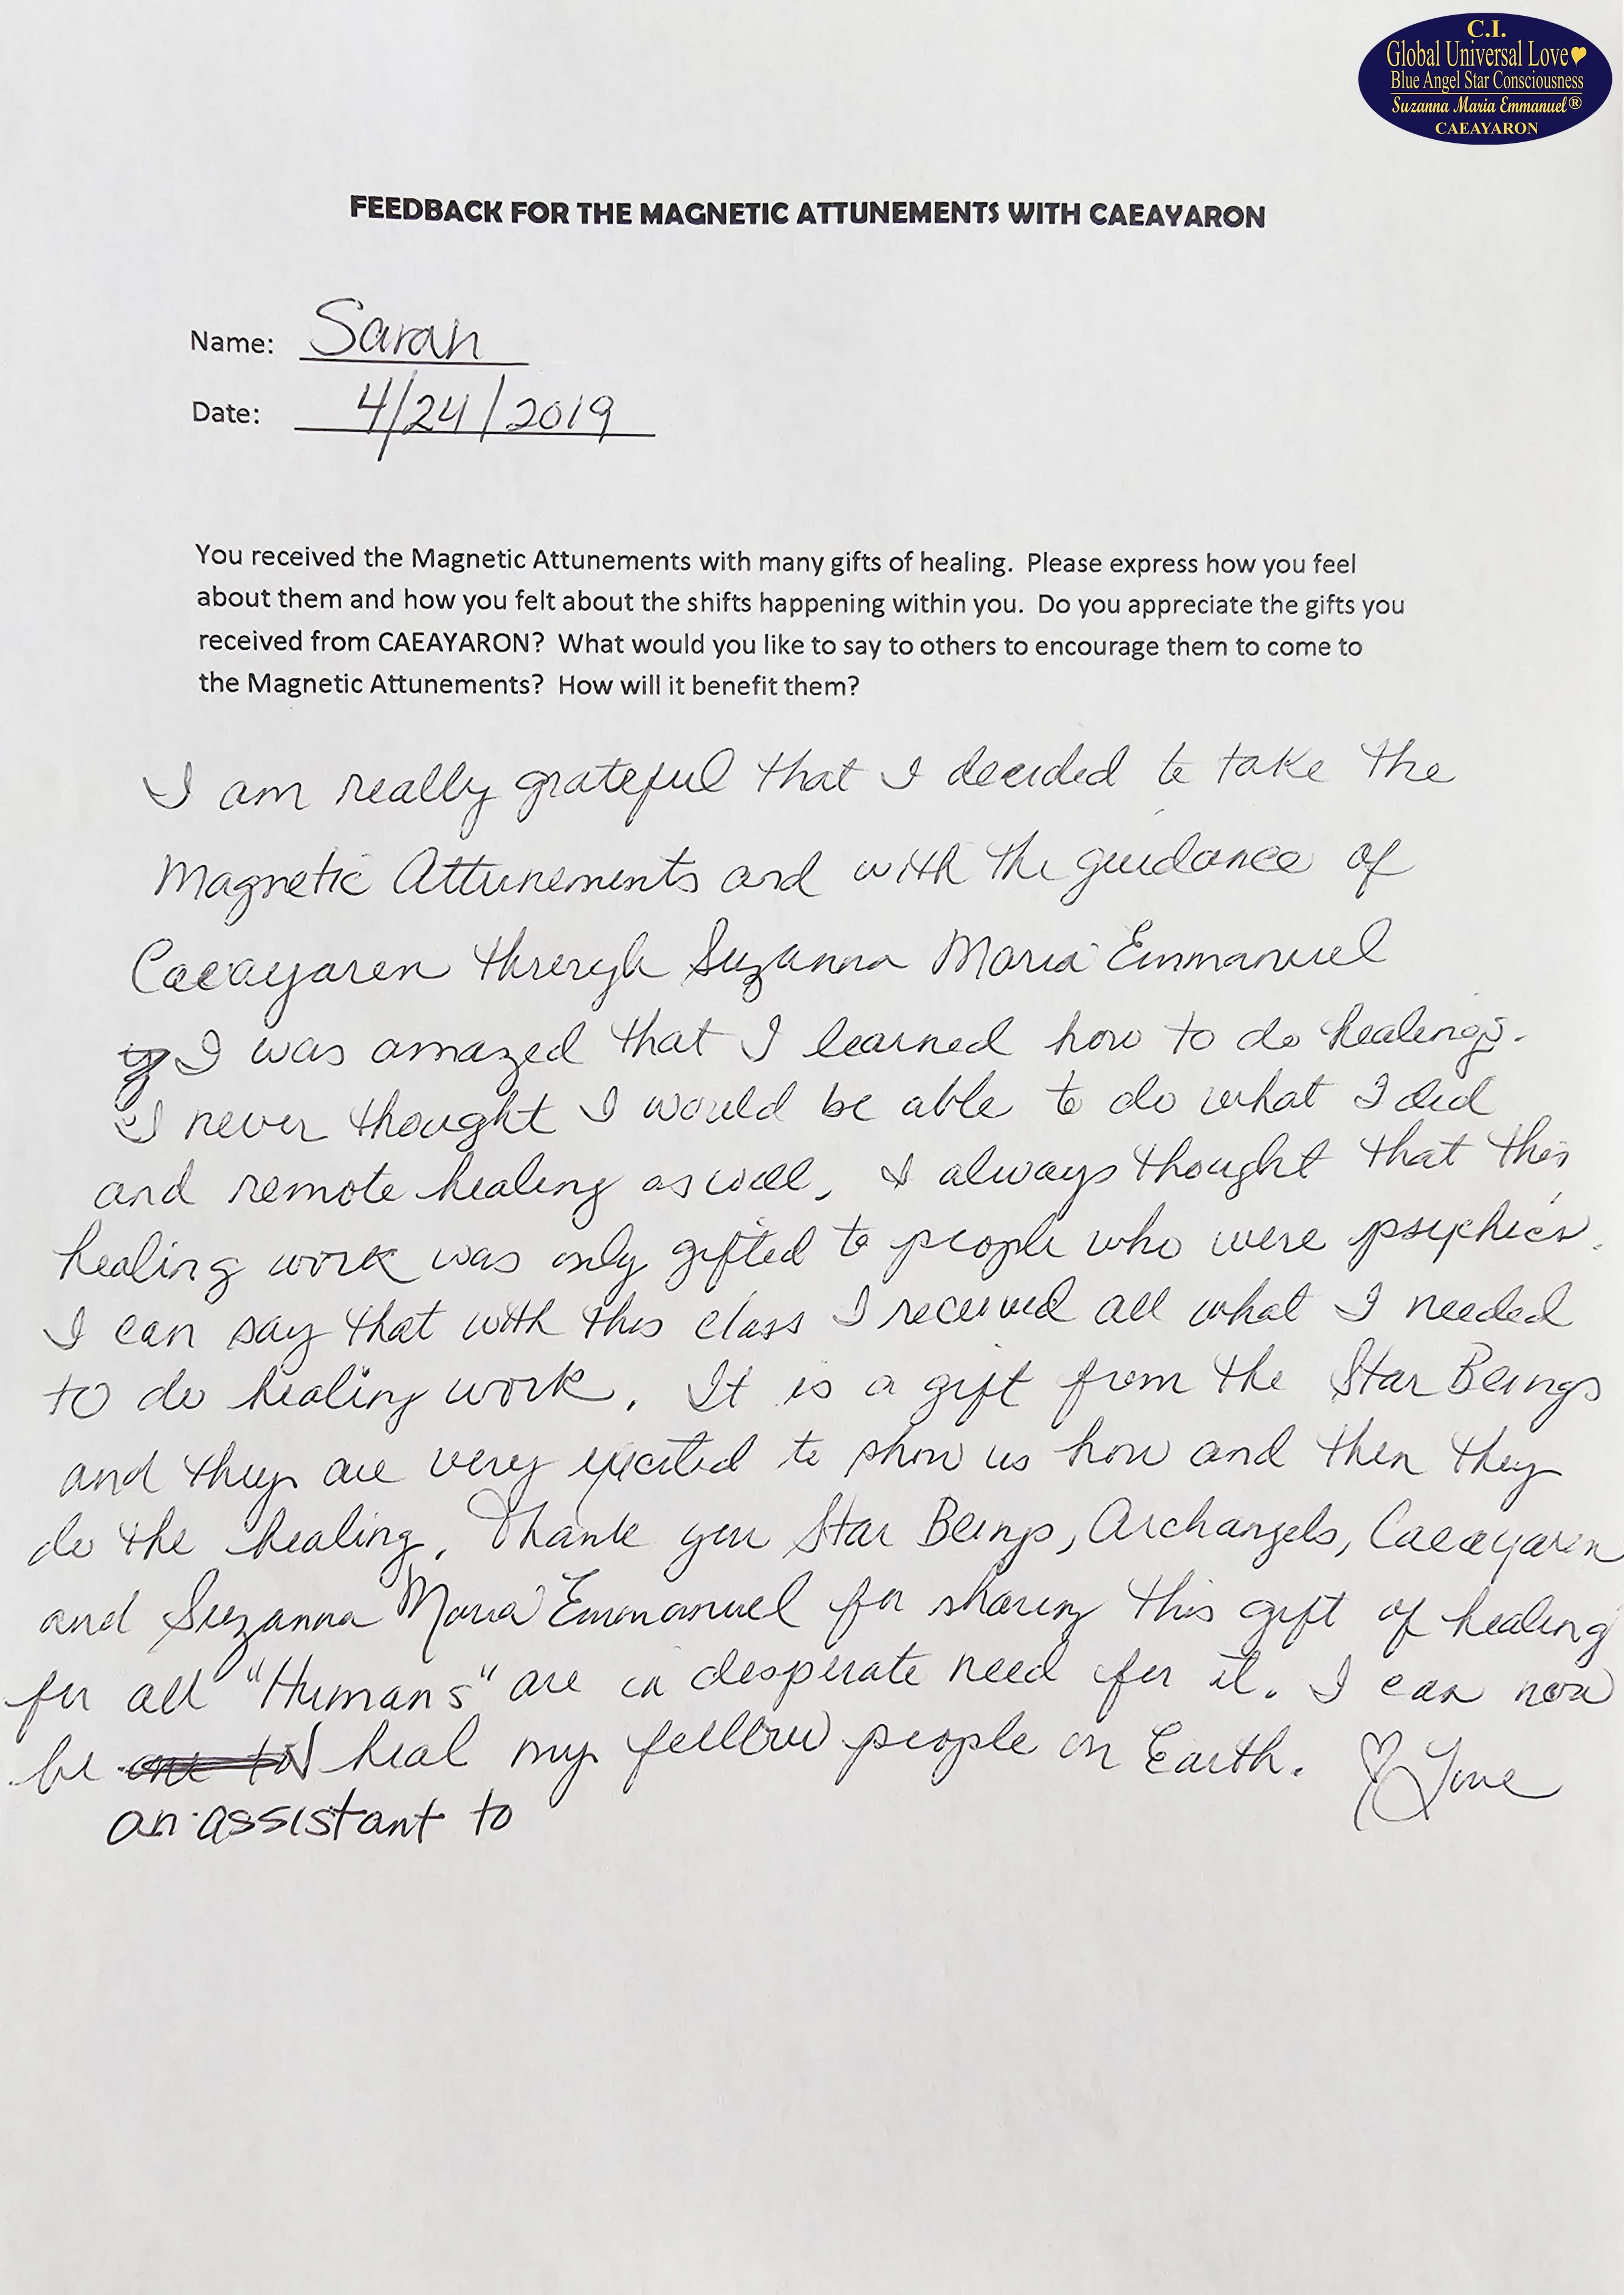 C.I.
Global Universal Love
Blue Angel Star Consciousness
Suzanna Maria Emmanuel®
CAEAYARON
FEEDBACK FOR THE MAGNETIC ATTUNEMENTS WITH CAEAYARON
Name: Sarah
Date: 4/24/2019
You received the Magnetic Attunements with many gifts of healing. Please express how you feel
about them and how you felt about the shifts happening within you. Do you appreciate the gifts you
received from CAEAYARON? What would you like to say to others to encourage them to come to
the Magnetic Attunements? How will it benefit them?
I am really grateful that I decided to take the
Magnetic Attunements and with the guidance of
Caeayaron through Suzanna Maria Emmanuel
I was amazed that I learned how to do healings.
I never thought I would be able to do what I did
and remote healing as well. I always thought that this
healing work was only gifted to people who were psychics.
I can say that with this class I received all what I needed
to do healing work. It is a gift from the Star Beings
and they are very excited to show us how and then they
do the healing. Thank you Star Beings, Archangels, Caeayaron
and Suzanna Maria Emmanuel for sharing this gift of healing
for all "Humans" are in desperate need for it. I can now
be heal my fellow people on Earth. Love
an assistant to